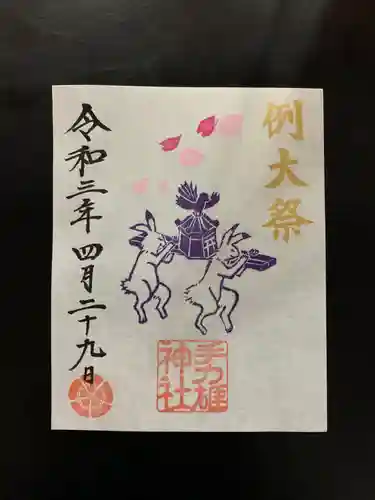 例大祭
令和三年四月二十九日
手力雄
神社